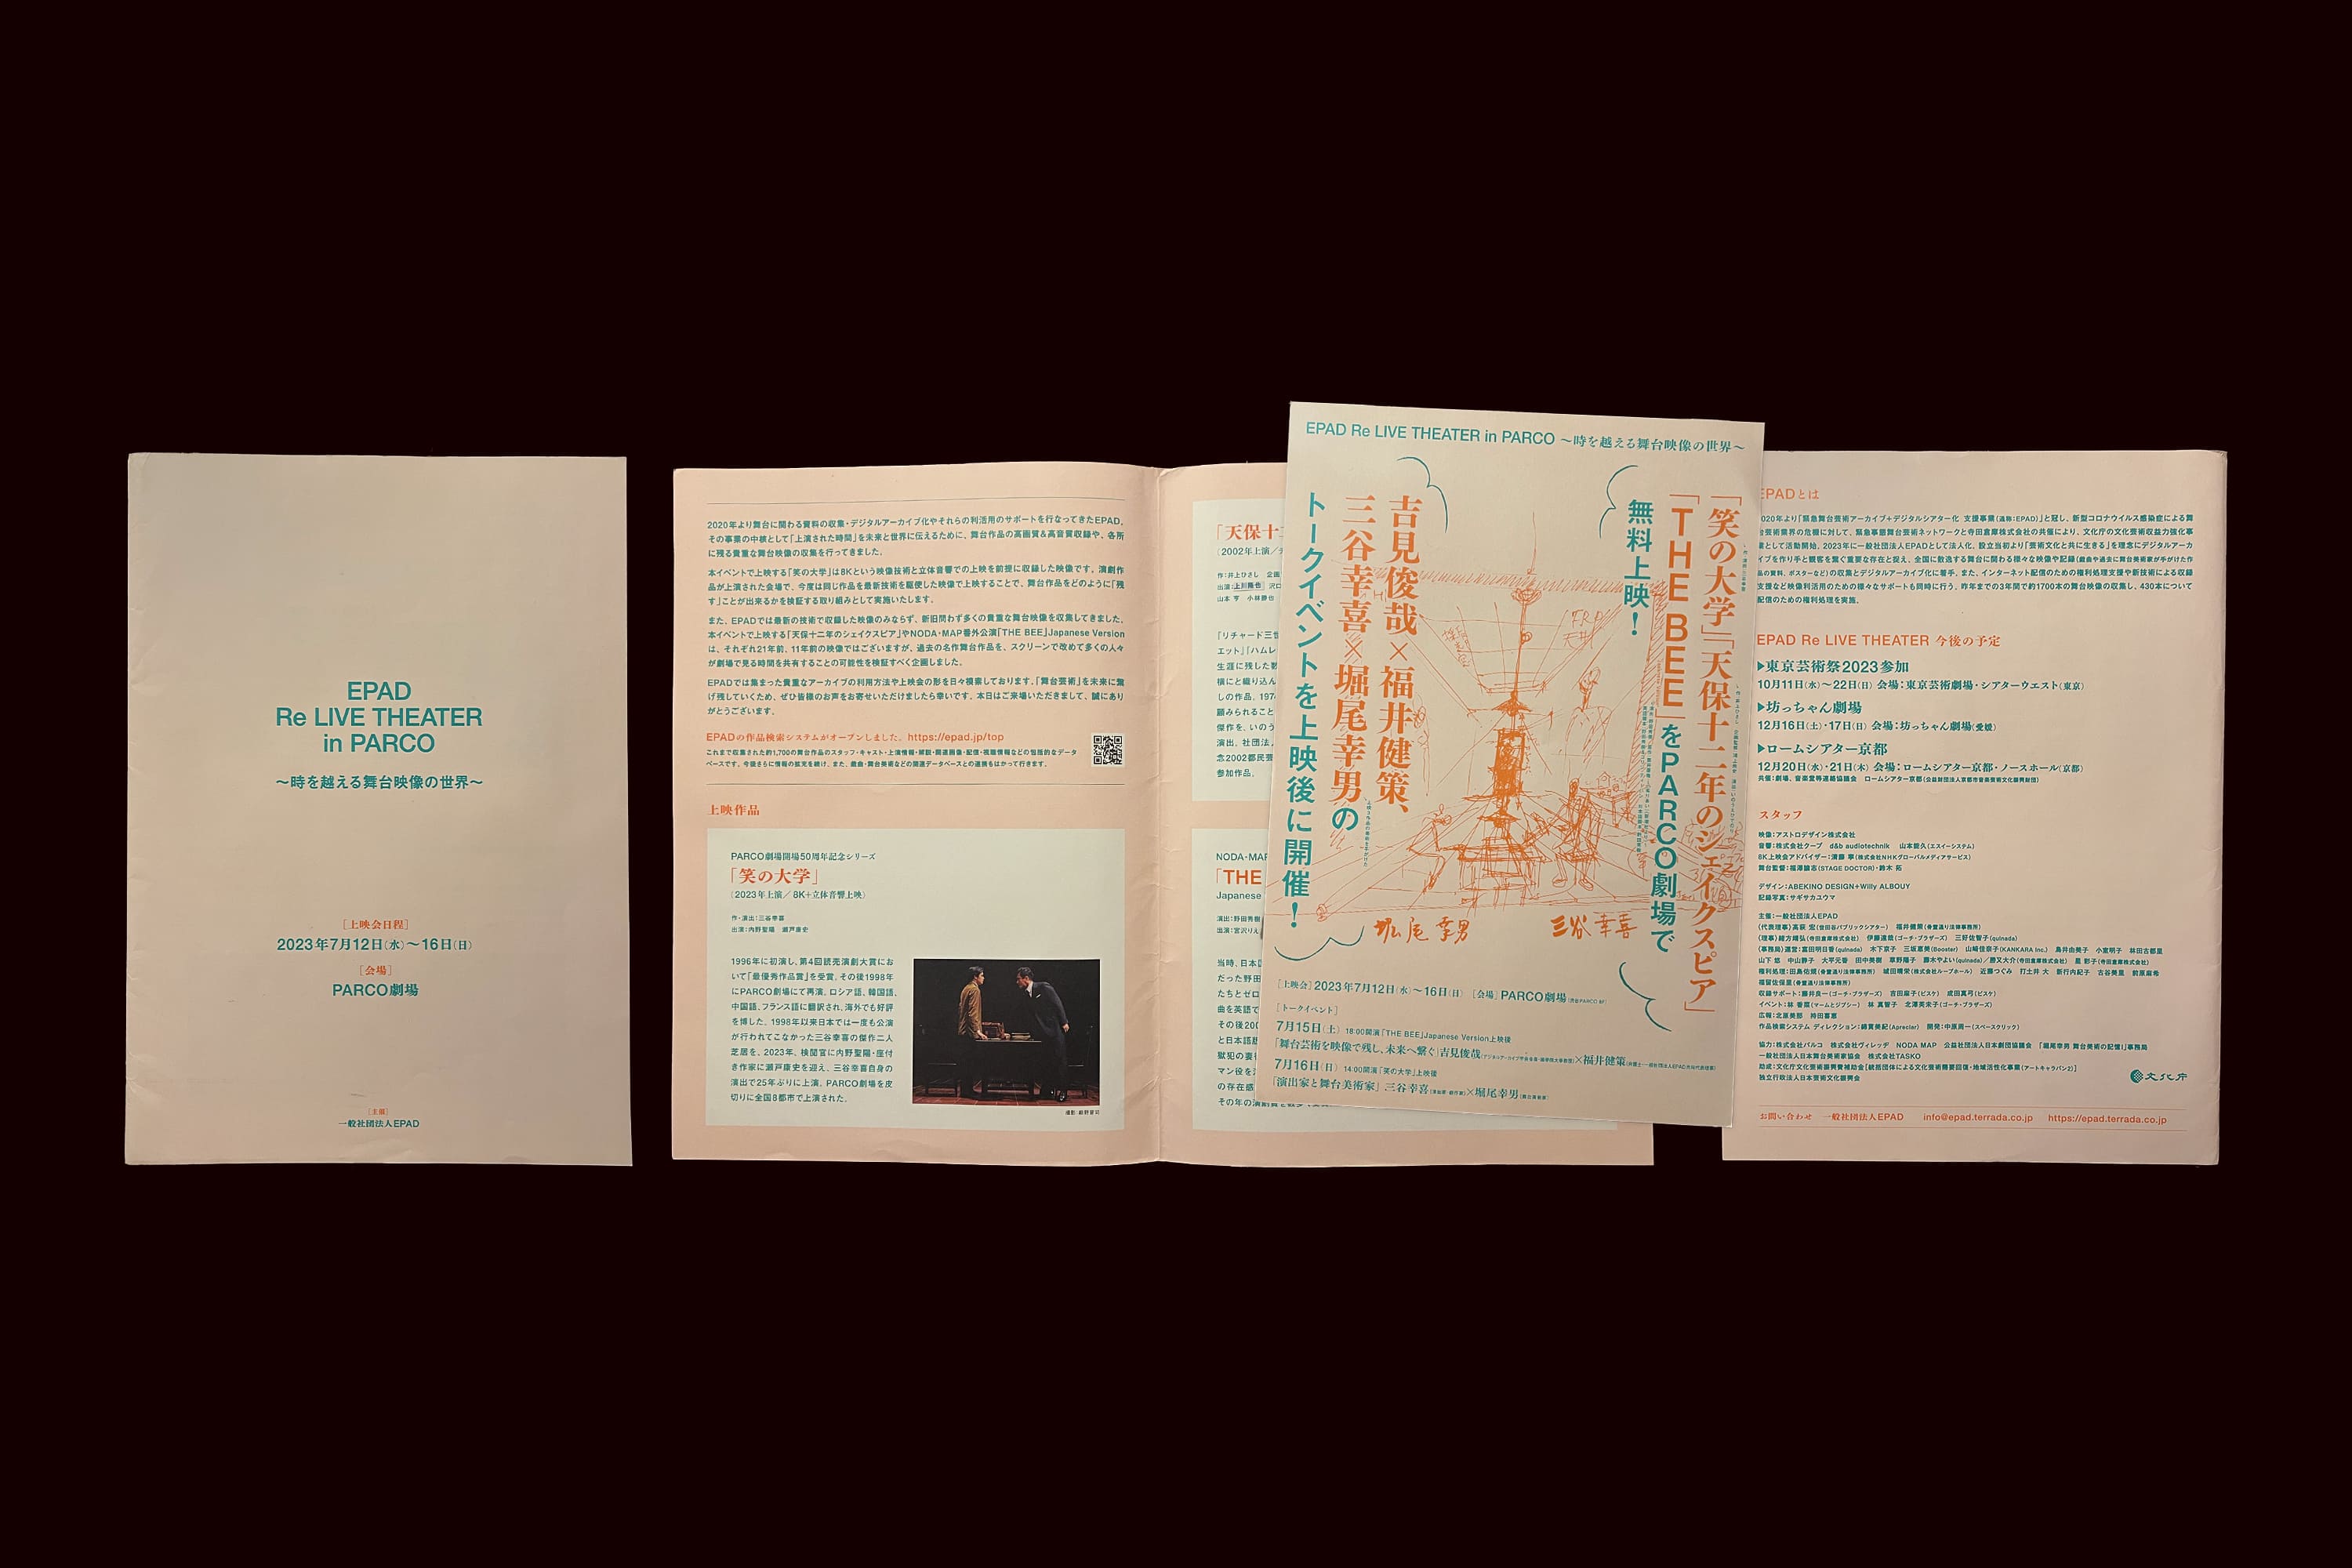 EPAD
Re LIVE THEATER
in PARCO
〜時を越える舞台映像の世界〜
［上映会日程］
2023年7月12日（水）〜16日（日）
［会場］
PARCO劇場
［主催］
一般社団法人EPAD
2020年より舞台に関わる資料の収集・デジタルアーカイブ化やそれらの利活用のサポートを行なってきたEPAD。
その事業の中核として「上演された時間」を未来と世界に伝えるために、舞台作品の高画質&高音質収録や、各所
に残る貴重な舞台映像の収集を行ってきました。
本イベントで上映する「笑の大学」は8Kという映像技術と立体音響での上映を前提に収録した映像です。演劇作
品が上演された会場で、今度は同じ作品を最新技術を駆使した映像で上映することで、舞台作品をどのように「残
す」ことが出来るかを検証する取り組みとして実施いたします。
また、EPADでは最新の技術で収録した映像のみならず、新旧問わず多くの貴重な舞台映像を収集してきました。
本イベントで上映する「天保十二年のシェイクスピア」やNODA・MAP番外公演「THE BEE」Japanese Version
は、それぞれ21年前、11年前の映像ではございますが、過去の名作舞台作品を、スクリーンで改めて多くの人々
が劇場で見る時間を共有することの可能性を検証すべく企画しました。
EPADでは集まった貴重なアーカイブの利用方法や上映会の形を日々模索しております。「舞台芸術」を未来に繋
げ残していくため、ぜひ皆様のお声をお寄せいただけましたら幸いです。本日はご来場いただきまして、誠にあり
がとうございます。
EPADの作品検索システムがオープンしました。https://epad.jp/top
これまで収集された約1,700の舞台作品のスタッフ・キャスト・上演情報・解説・関連画像・配信・視聴情報などの包括的なデータ
ベースです。今後さらに情報の拡充を続け、また、戯曲・舞台美術などの関連データベースとの連携もはかって行きます。
上映作品
PARCO劇場開場50周年記念シリーズ
「笑の大学」
（2023年上演／8K+立体音響上映）
作・演出：三谷幸喜
出演：内野聖陽　瀬戸康史
1996年に初演し、第4回読売演劇大賞にお
いて「最優秀作品賞」を受賞。その後1998年
にPARCO劇場にて再演。ロシア語、韓国語、
中国語、フランス語に翻訳され、海外でも好評
を博した。1998年以来日本では一度も公演
が行われてこなかった三谷幸喜の傑作二人
芝居を、2023年、検閲官に内野聖陽・座付
き作家に瀬戸康史を迎え、三谷幸喜自身の
演出で25年ぶりに上演。PARCO劇場を皮
切りに全国8都市で上演された。
「天保十二
（2002年上演／
作：井上ひさし　企画
出演：上川隆也　沢口
山本 亨　小林勝也
『リチャード三世
エット』『ハムレ
生涯に残した
横にと織り込ん
しの作品。197
顧みられること
傑作を、いのう
演出。社団法
念2002都民芸
参加作品。
NODA・MAP
「THE
Japanese
演出：野田秀樹
出演：宮沢りえ
当時、日本
だった野田
たちとゼロ
曲を英語で
その後200
と日本語版
獄犯の妻
マン役を
の存在感
EPAD Re LIVE THEATER in PARCO 〜時を越える舞台映像の世界〜
「笑の大学」「天保十二年のシェイクスピア」
「THE BEE」をPARCO劇場で
無料上映！
吉見俊哉×福井健策、
三谷幸喜×堀尾幸男の
トークイベントを上映後に開催！
堀尾幸男
三谷幸喜
［上映会］2023年7月12日（水）〜16日（日）　［会場］PARCO劇場（渋谷PARCO 8F）
［トークイベント］
7月15日（土）18:00開演「THE BEE」Japanese Version上映後
「舞台芸術を映像で残し、未来へ繋ぐ」吉見俊哉×福井健策
7月16日（日）14:00開演「笑の大学」上映後
「演出家と舞台美術家」三谷幸喜×堀尾幸男
EPADとは
2020年より「緊急舞台芸術アーカイブ+デジタルシアター化 支援事業（通称：EPAD）」と冠し、新型コロナウイルス感染症による舞
台芸術業界の危機に対して、緊急事態舞台芸術ネットワークと寺田倉庫株式会社の共催により、文化庁の文化芸術収益力強化事
業として活動開始。2023年に一般社団法人EPADとして法人化。設立当初より「芸術文化と共に生きる」を理念にデジタルアーカ
イブを作り手と観客を繋ぐ重要な存在と捉え、全国に散逸する舞台に関わる様々な映像や記録（戯曲や過去に舞台美術家が手がけた作
品の資料、ポスターなど）の収集とデジタルアーカイブ化に着手。また、インターネット配信のための権利処理支援や新技術による収録
支援など映像利活用のための様々なサポートも同時に行う。昨年までの3年間で約1700本の舞台映像の収集し、430本について
配信のための権利処理を実施。
EPAD Re LIVE THEATER 今後の予定
▶東京芸術祭2023参加
10月11日（水）〜22日（日）会場：東京芸術劇場・シアターウエスト（東京）
▶坊っちゃん劇場
12月16日（土）・17日（日）会場：坊っちゃん劇場（愛媛）
▶ロームシアター京都
12月20日（水）・21日（木）会場：ロームシアター京都・ノースホール（京都）
共催：劇場、音楽堂等連絡協議会　ロームシアター京都（公益財団法人京都市音楽芸術文化振興財団）
スタッフ
映像：アストロデザイン株式会社
音響：株式会社クープ　d&b audiotechnik　山本能久（エスイーシステム）
8K上映会アドバイザー：清藤 寧（株式会社NHKグローバルメディアサービス）
舞台監督：福澤諭志（STAGE DOCTOR）・鈴木 拓
デザイン：ABEKINO DESIGN+Willy ALBOUY
記録写真：サギサカユウマ
主催：一般社団法人EPAD
（代表理事）高萩 宏（世田谷パブリックシアター）　福井健策（骨董通り法律事務所）
（理事）緒方靖弘（寺田倉庫株式会社）　伊藤達哉（ゴーチ・ブラザーズ）　三好佐智子（quinada）
協力：株式会社パルコ　株式会社ヴィレッヂ　NODA MAP　公益社団法人日本劇団協議会　「堀尾幸男 舞台美術の記憶I」事務局
一般社団法人日本舞台美術家協会　株式会社TASKO
独立行政法人日本芸術文化振興会
文化庁
お問い合わせ　一般社団法人EPAD　info@epad.terrada.co.jp　https://epad.terrada.co.jp